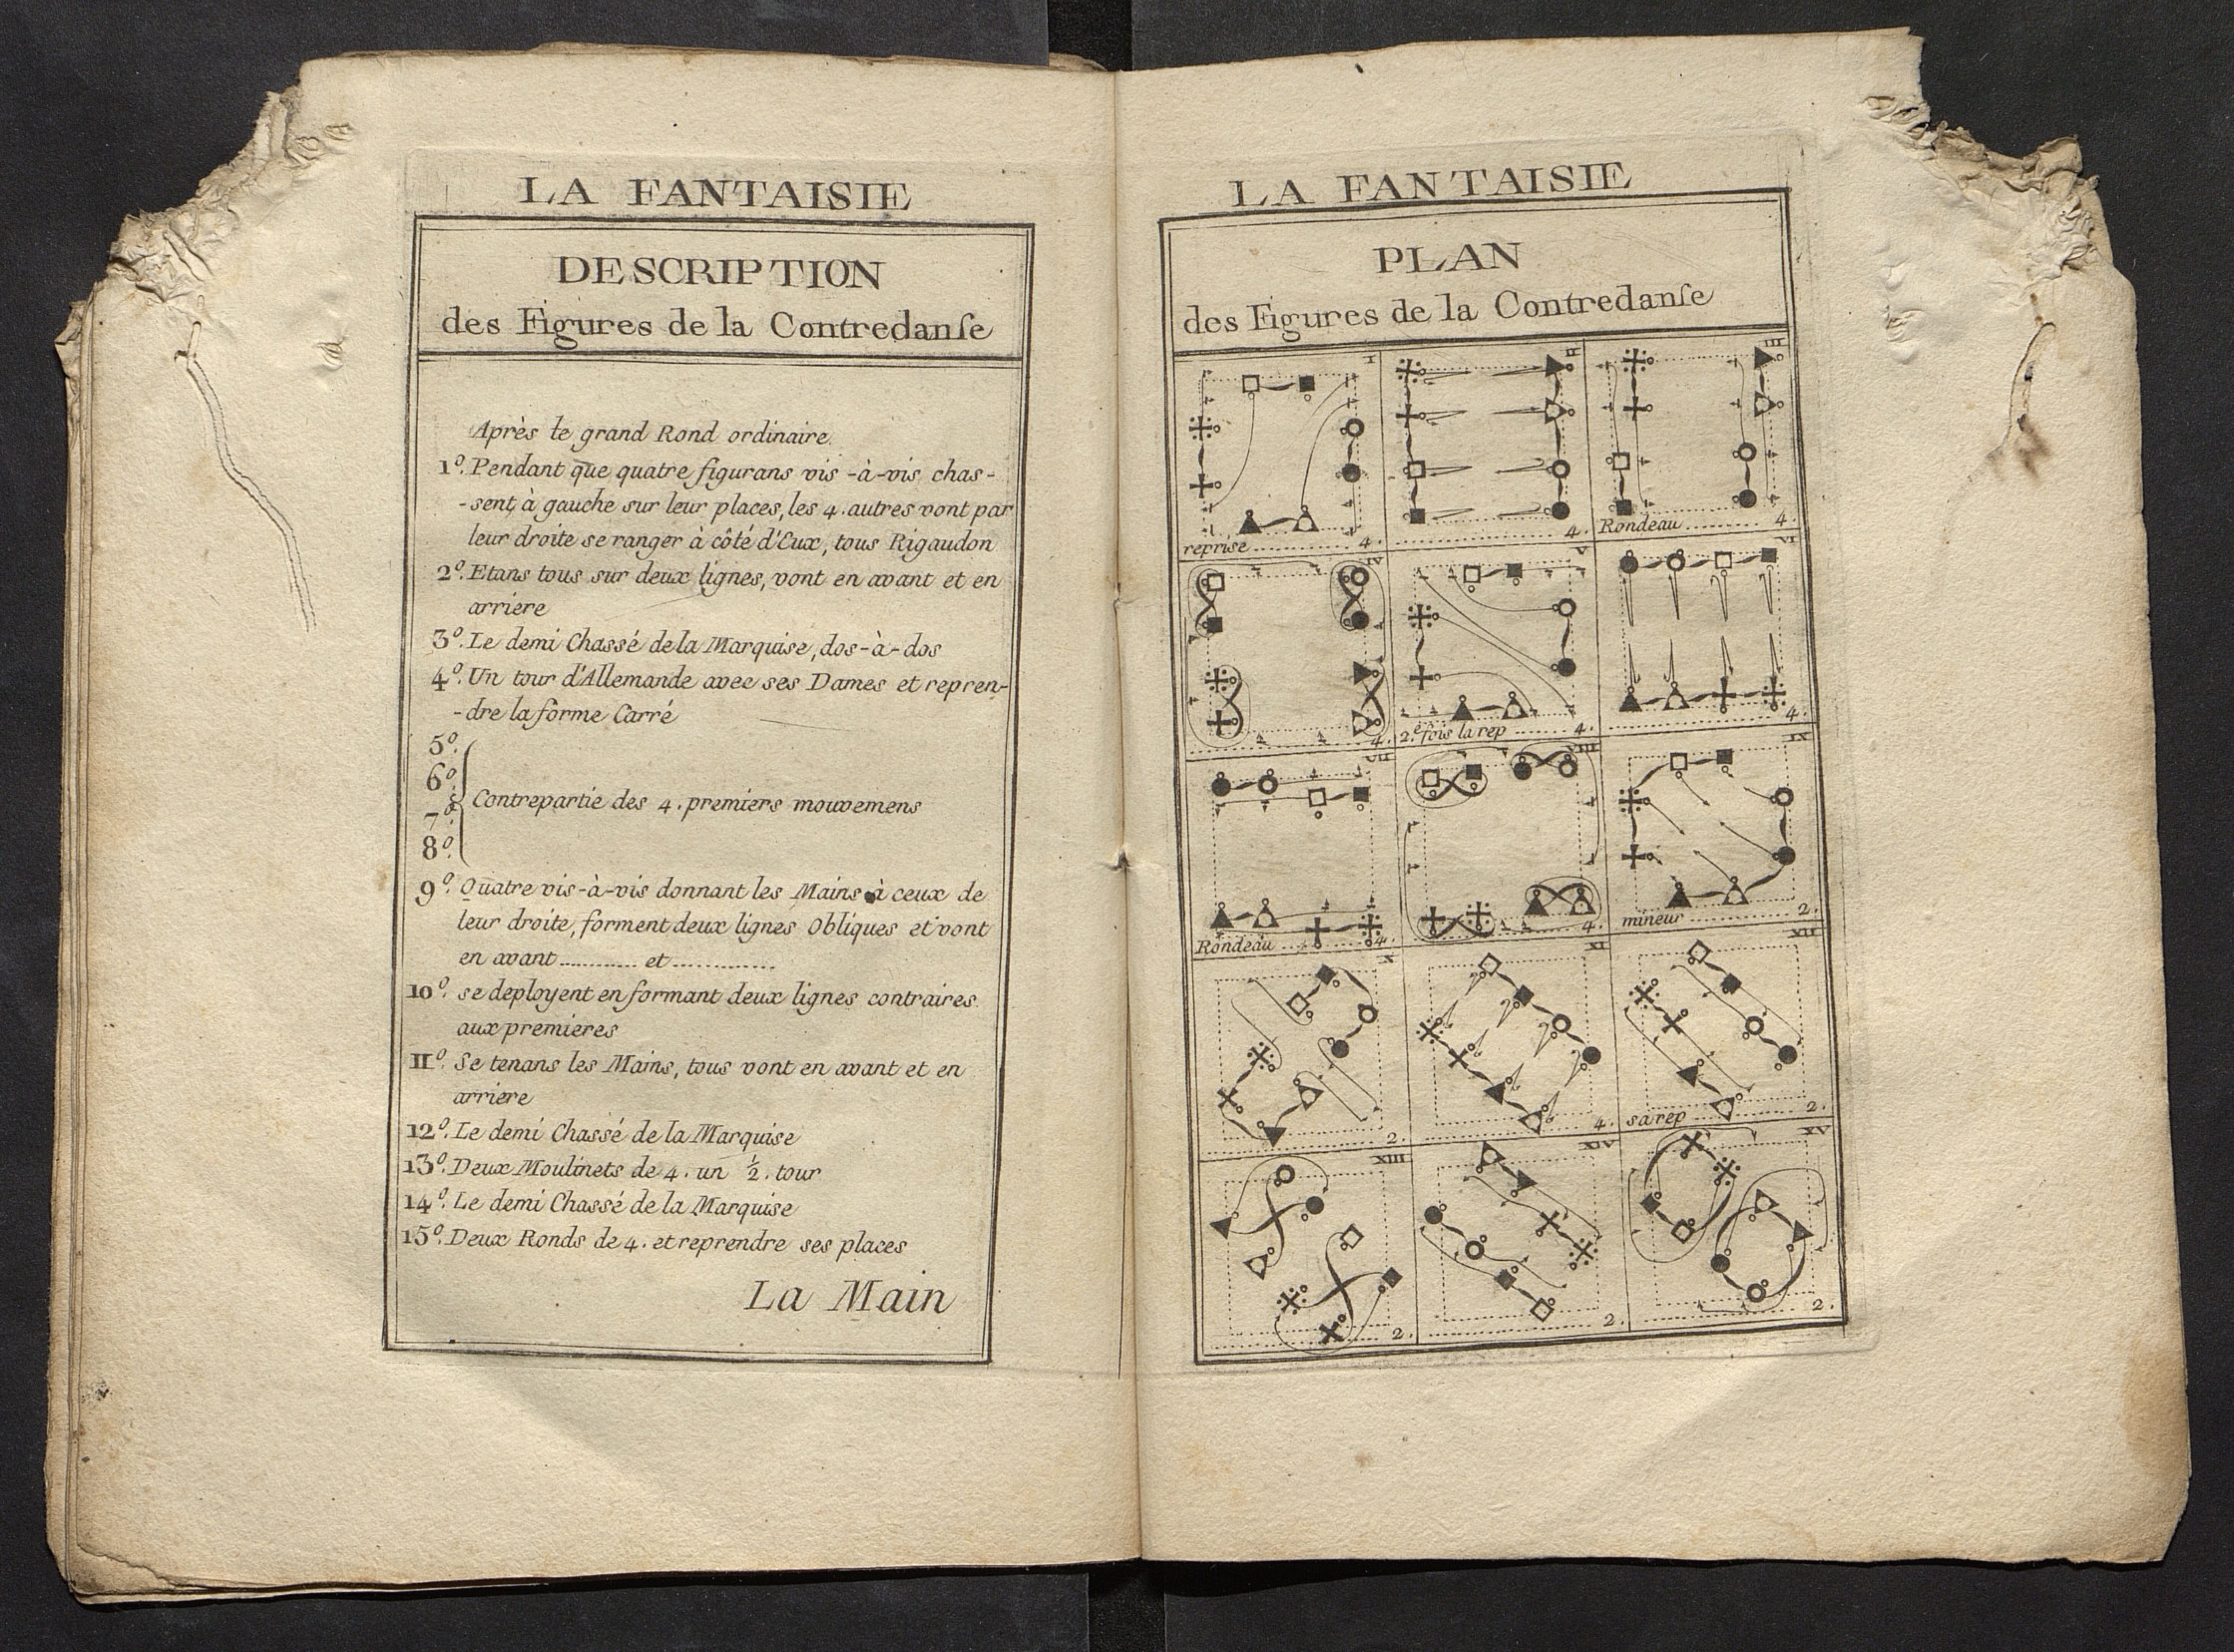 LA FANTAISIE
DESCRIPTION
des Figures de la Contredanſe
Après le grand Rond ordinaire.
1º. Pendant que quatre figurans vis-à-vis chas-
-sent à gauche sur leur places, les 4. autres vont par
leur droite se ranger à côté d'Eux, tous Rigaudon
2º. Etans tous sur deux lignes, vont en avant et en
arriere
3º. Le demi Chassé de la Marquise, dos-à-dos
4º. Un tour d'Allemande avec ses Dames et repren-
-dre la forme Carré
5º.
6º.
7º. &
8º.
Contrepartie des 4. premiers mouvemens
9º. Quatre vis-à-vis donnant les Mains à ceux de
leur droite, forment deux lignes Obliques et vont
en avant ............ et ..............
10º. se deployent en formant deux lignes contraires
aux premieres
11º. Se tenans les Mains, tous vont en avant et en
arriere
12º. Le demi Chassé de la Marquise
13º. Deux Moulinets de 4. un ½. tour
14º. Le demi Chassé de la Marquise
15º. Deux Ronds de 4. et reprendre ses places
La Main
LA FANTAISIE
PLAN
des Figures de la Contredanſe
I II III
reprise ............ 4. ............ 4. Rondeau ............ 4.
IV V VI
............ 4. 2.e fois la rep ............ 4. ............ 4.
VII VIII IX
Rondeau ............ 4. ............ 4. mineur ............ 2.
X XI XII
............ 2. ............ 4. sa rep ............ 2.
XIII XIV XV
............ 2. ............ 2. ............ 2.